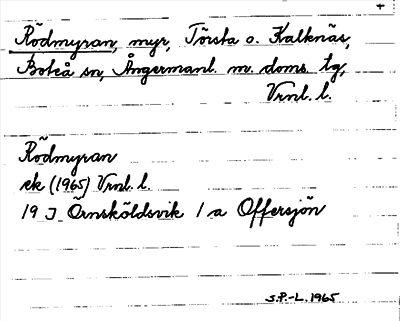 +
Rödmyran, myr, Törsta o. Kalknäs,
Boteå sn, Ångermanl. m. doms. tg,
Vrnl. l.
Rödmyran
ek (1965) Vrnl. l.
19 J Örnsköldsvik 1 a Offersjön
S.P.-L. 1965